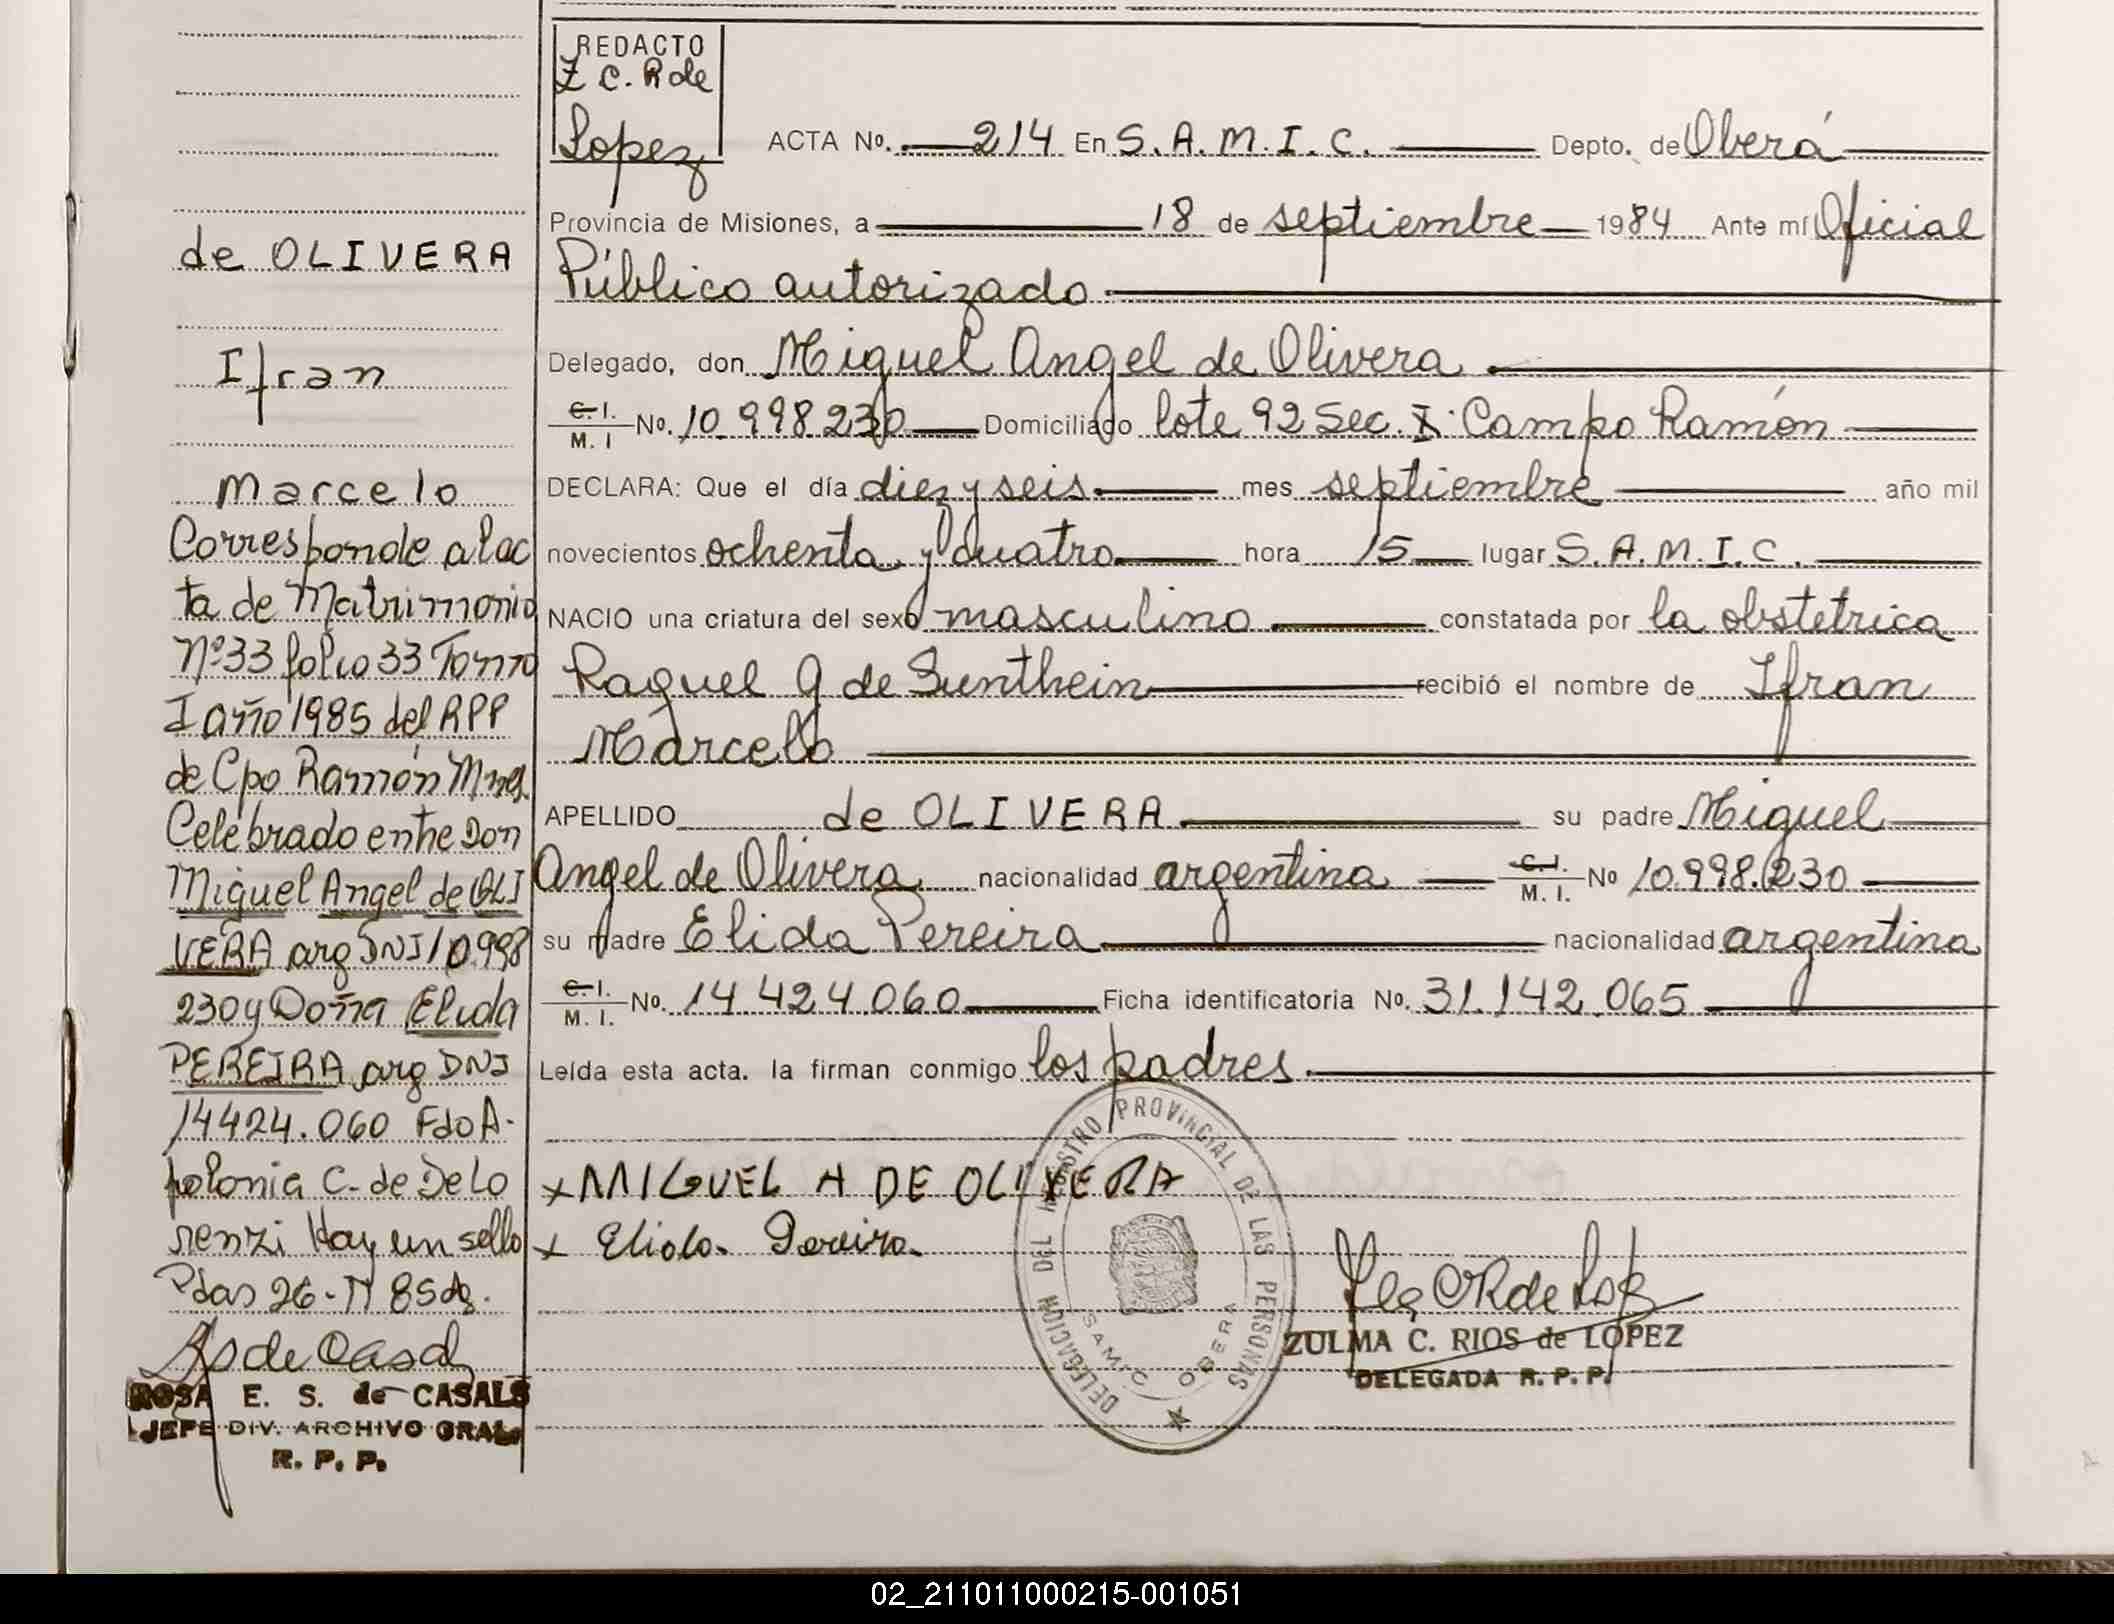 de OLIVERA
Ifran
Marcelo
Corresponde a la ac
ta de Matrimonio
Nº33 folio 33 Tomo
I año 1985 del RPP
de Cpo Ramón Mnes.
Celebrado entre Don
Miguel Angel de OLI
VERA arg DNI 10.998
230 y Doña Elida
PEREIRA arg DNI
14424.060 Fdo A-
polonia C. de De Lo
renzi Hay un sello
Pdas 26- 85
ROSA E. S. de CASALS
JEFE DIV. ARCHIVO GRAL.
R. P. P.
REDACTO
Z C. R de
Lopez
ACTA No. 214 En S.A.M.I.C. Depto. de Oberá
Provincia de Misiones, a 18 de septiembre 1984 Ante mí Oficial
Público autorizado
Delegado, don Miguel Angel de Olivera
C.I. M.I No. 10.998.230 Domiciliado lote 92 Sec. I. Campo Ramón
DECLARA: Que el día diez y seis mes septiembre año mil
novecientos ochenta y cuatro hora 15 lugar S.A.M.I.C.
NACIO una criatura del sexo masculino constatada por la obstetrica
Raquel G de Sunthein recibió el nombre de Ifran
Marcelo
APELLIDO de OLIVERA su padre Miguel
Angel de Olivera nacionalidad argentina C.I. M.I. No 10.998.230
su madre Elida Pereira nacionalidad argentina
C.I. M.I. No. 14.424.060 Ficha identificatoria No. 31.142.065
Leída esta acta. la firman conmigo los padres
x MIGUEL A DE OLIVERA
x Elida Pereira
DELEGACION DEL REGISTRO PROVINCIAL DE LAS PERSONAS
SAMIC OBERA
ZULMA C. RIOS de LOPEZ
DELEGADA R. P. P.
02_211011000215-001051